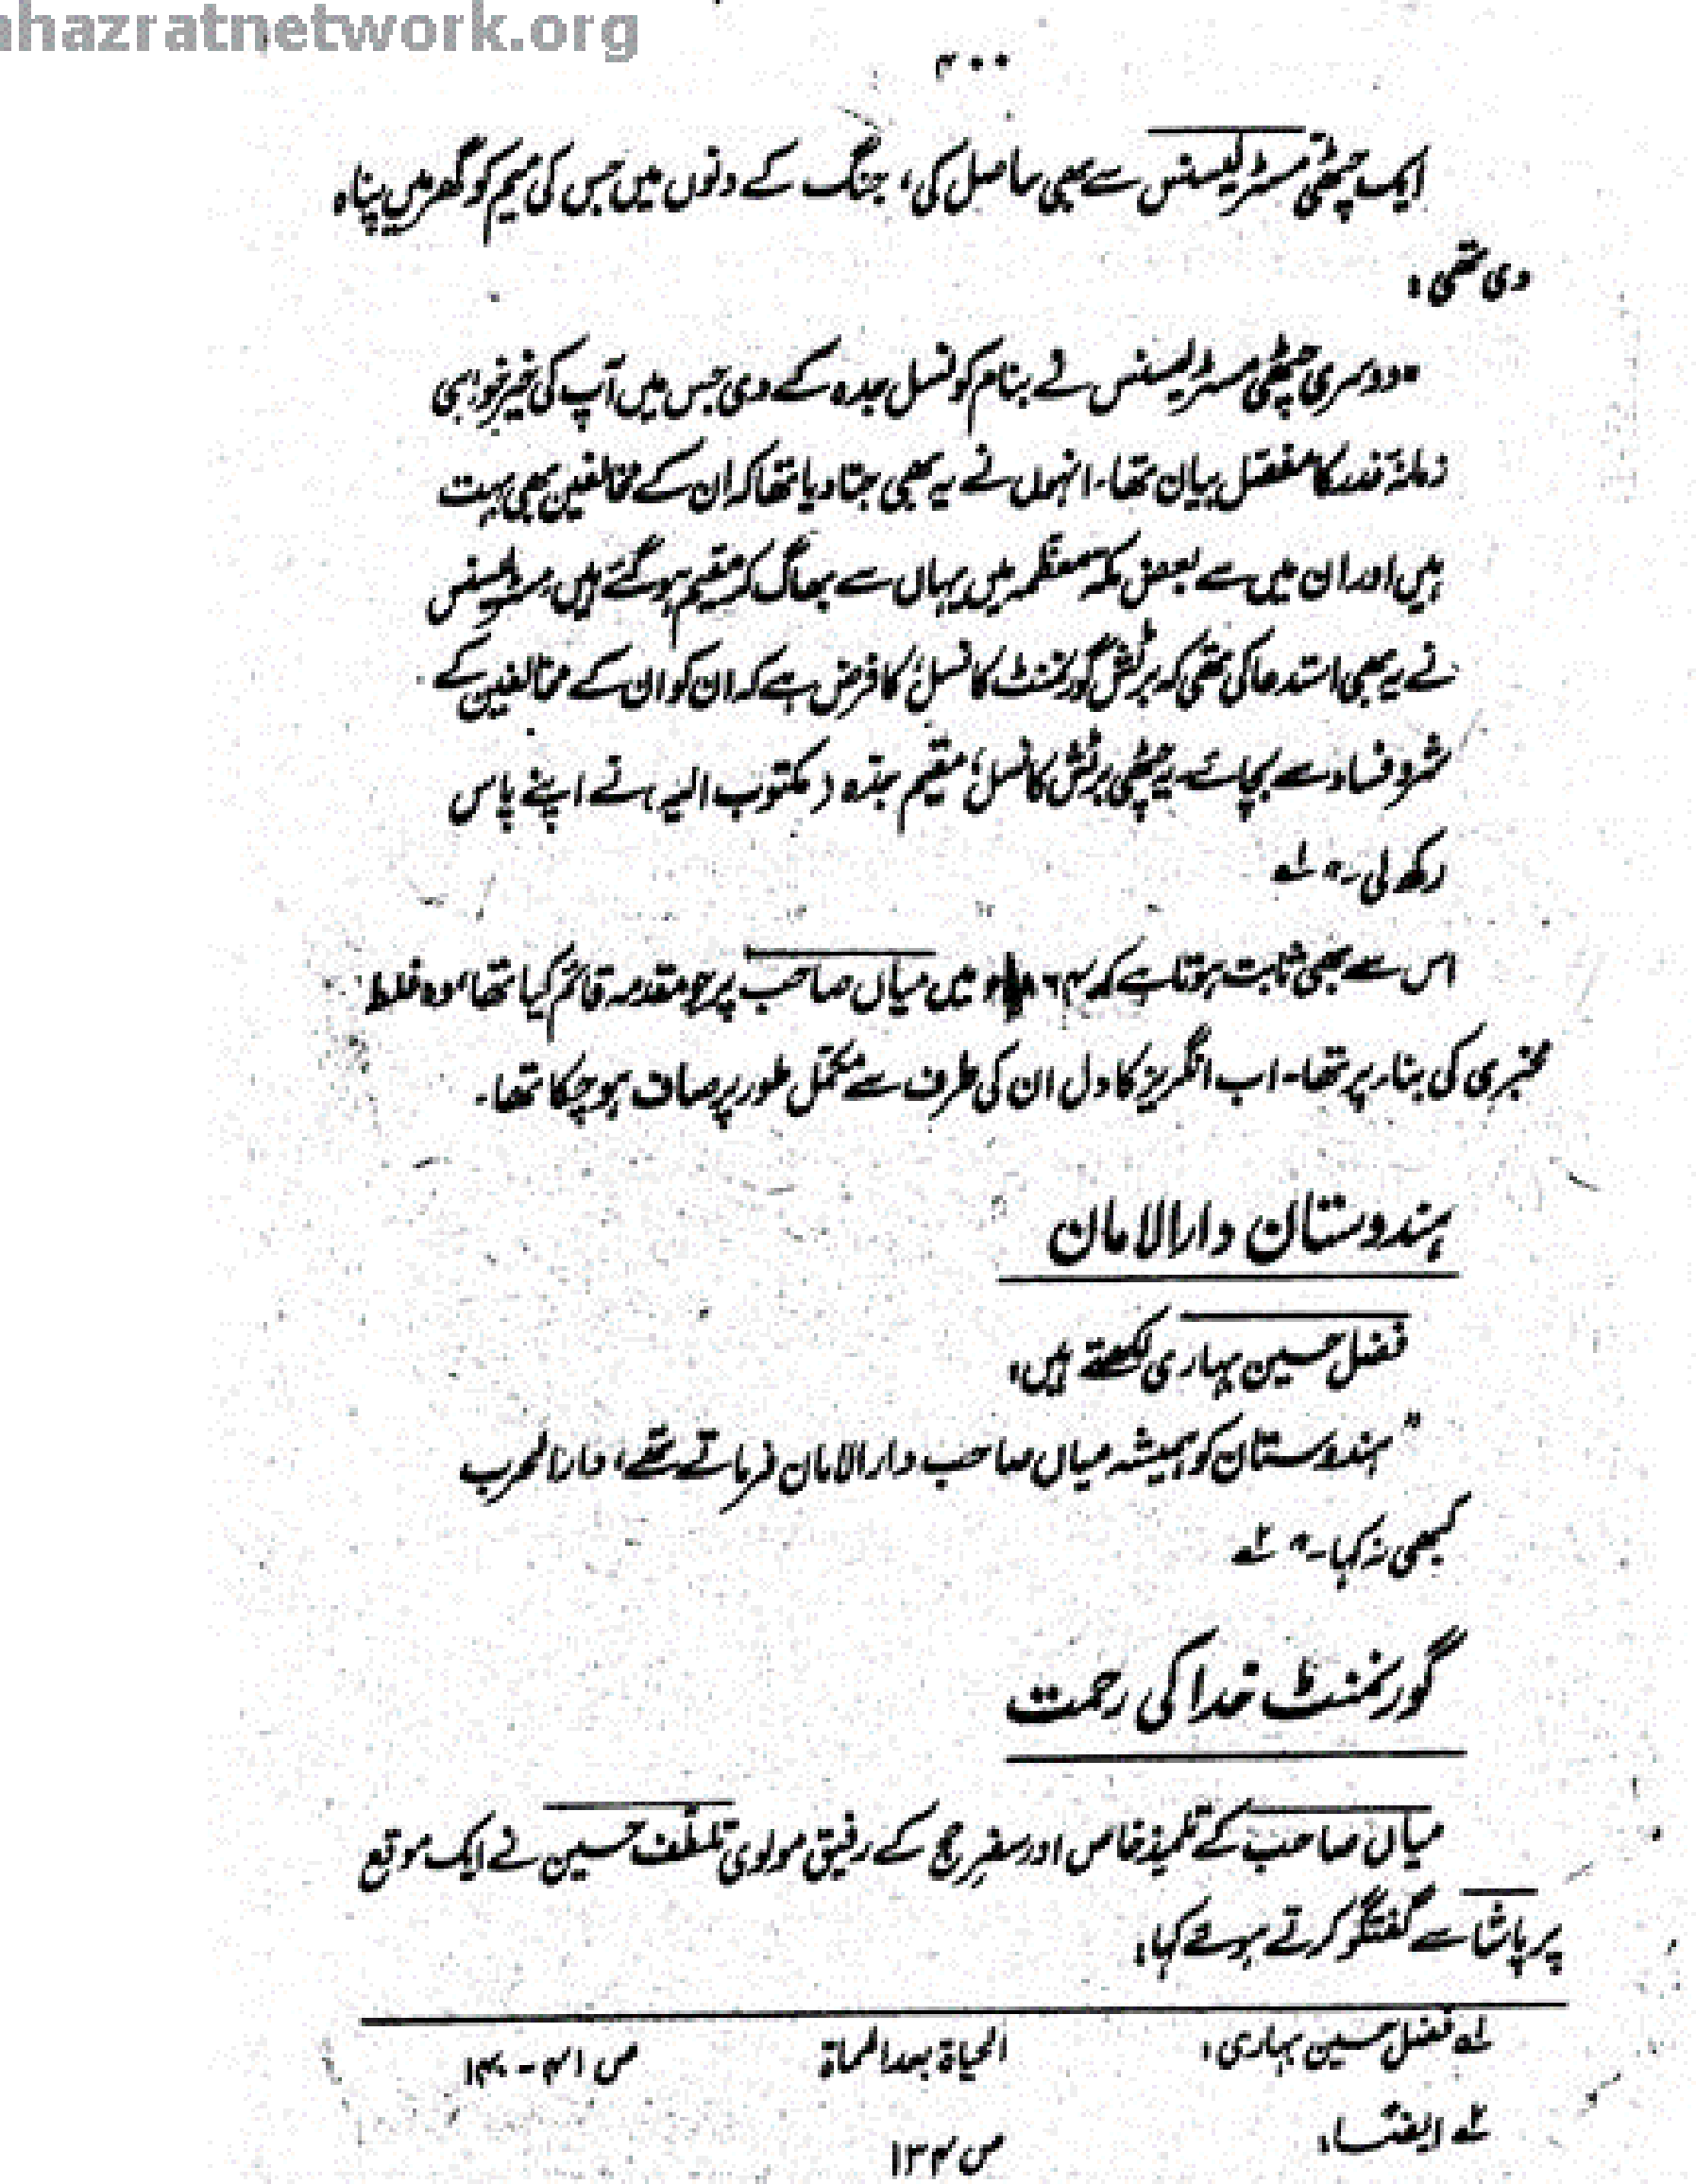 ahazratnetwork.org
۴۰۰
ایک چٹھی مسٹر لیسنس سے بھی حاصل کی، جنگ کے دنوں میں جس کی میم کو گھر میں پناہ
دی تھی:
"دوسری چٹھی مسٹر لیسنس نے بنام کونسل جدہ کے دی جس میں آپ کی خیر خواہی
زمانۂ غدر کا مفصّل بیان تھا۔ انہوں نے یہ بھی جتا دیا تھا کہ ان کے مخالفین بھی بہت
ہیں اور ان میں سے بعض مکہ معظمہ میں یہاں سے بھاگ کر مقیم ہو گئے ہیں، مسٹر لیسنس
نے یہ بھی استدعا کی تھی کہ برٹش گورنمنٹ کانسل، کا فرض ہے کہ ان کو ان کے مخالفین کے
شر و فساد سے بچائے۔ یہ چٹھی برٹش کانسل، مقیم جدّہ (مکتوب الیہ) نے اپنے پاس
رکھ لی۔" ۱؎
اس سے بھی ثابت ہوتا ہے کہ ۱۸۶۴ء میں میاں صاحب پر جو مقدمہ قائم کیا تھا، وہ غلط
مخبری کی بناء پر تھا۔ اب انگریز کا دل ان کی طرف سے مکمّل طور پر صاف ہو چکا تھا۔
ہندوستان دارالامان
فضل حسین بہاری لکھتے ہیں:
"ہندوستان کو ہمیشہ میاں صاحب دارالامان فرماتے تھے، دارالحرب
کبھی نہ کہا۔" ۲؎
گورنمنٹ خدا کی رحمت
میاں صاحب کے تلمیذ خاص اور سفرِ حج کے رفیق مولوی تلطّف حسین نے ایک موقع
پر پاشا سے گفتگو کرتے ہوئے کہا:
۱؎ فضل حسین بہاری: الحیاۃ بعد المماۃ ص ۴۱-۱۴۰
۲؎ ایضًا: ص ۱۳۴